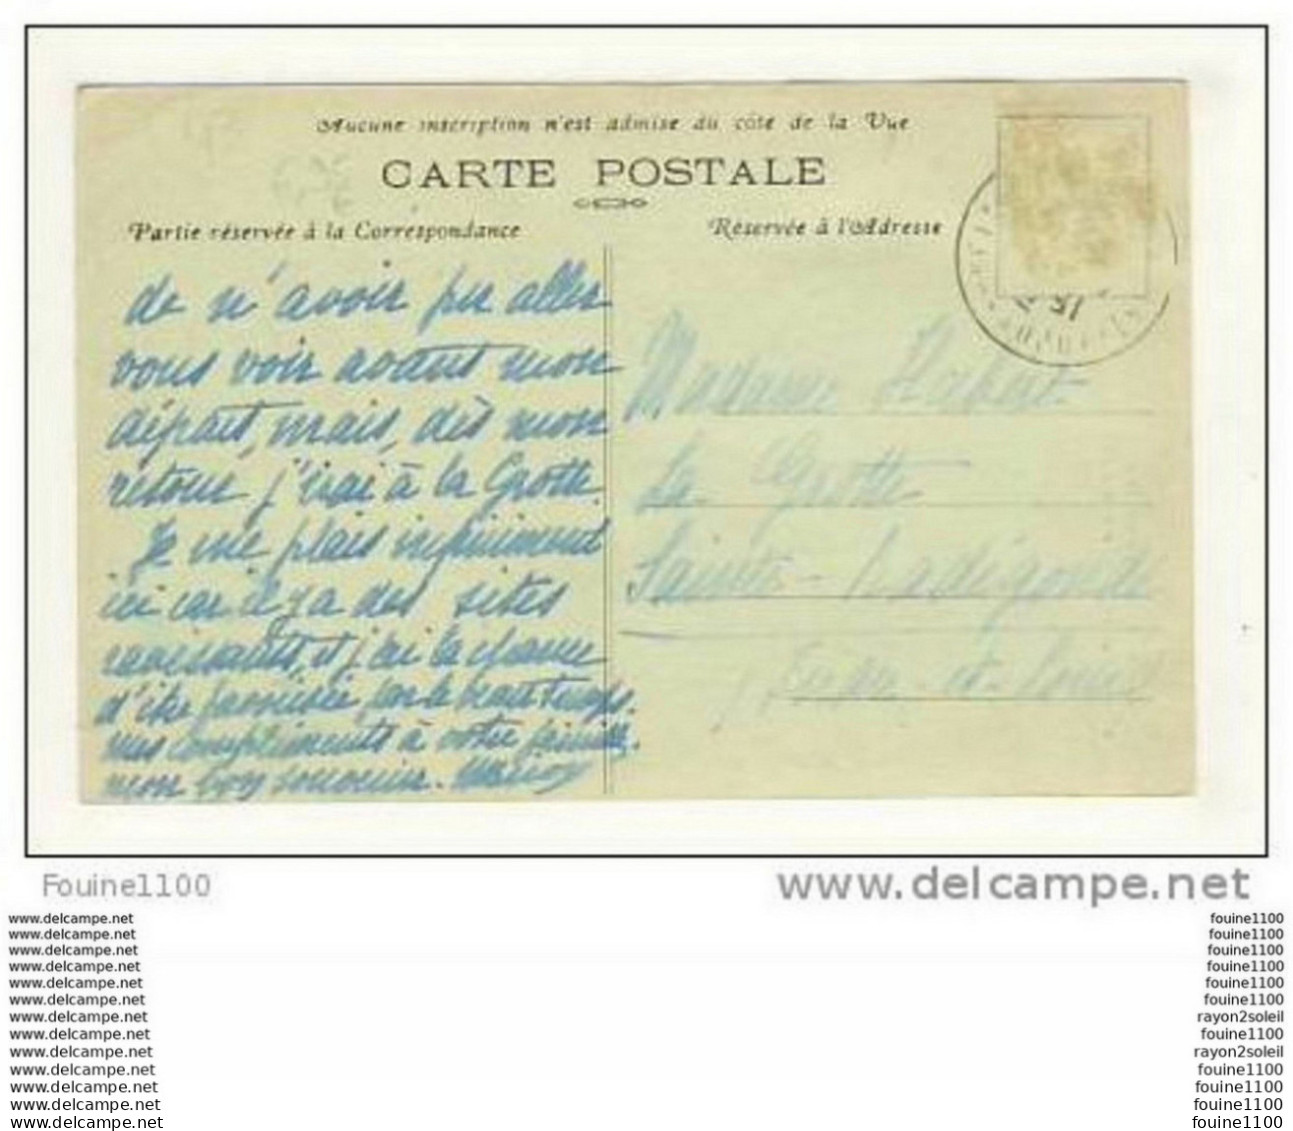 Aucune inscription n'est admise du côté de la Vue
CARTE POSTALE
Partie réservée à la Correspondance
Réservée à l'Adresse
de n'avoir pu aller
vous voir avant mon
départ, mais, dès mon
retour j'irai à la Grotte.
Je me plais infiniment
ici car il y a des sites
ravissants, et j'ai la chance
d'être favorisée par le beau temps.
Mes compliments à votre famille.
mon bon souvenir.
Madame Hubert
La Grotte
Sainte-Radégonde
Indre-et-Loire
37
Fouine1100
www.delcampe.net
www.delcampe.net
www.delcampe.net
www.delcampe.net
www.delcampe.net
www.delcampe.net
www.delcampe.net
www.delcampe.net
www.delcampe.net
www.delcampe.net
www.delcampe.net
www.delcampe.net
www.delcampe.net
www.delcampe.net
fouine1100
fouine1100
fouine1100
fouine1100
fouine1100
fouine1100
rayon2soleil
fouine1100
rayon2soleil
fouine1100
fouine1100
fouine1100
fouine1100